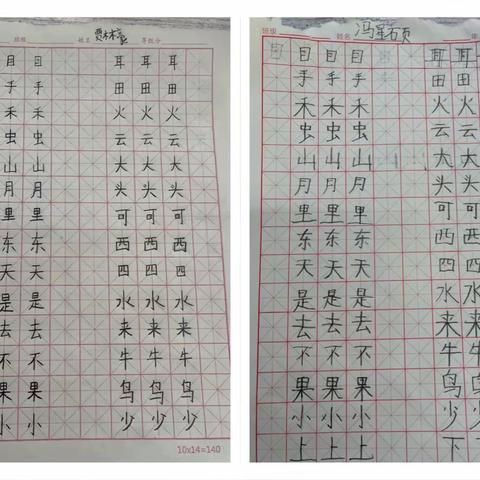 班级 姓名
目 目 耳 耳 耳
手 手 田 田 田
禾 禾 火 火 火
虫 虫 云 云 云
山 山 大 大 大
月 月 头 头 头
里 里 可 可 可
东 东 西 西 西
天 天 四 四 四
是 是 水 水 水
去 去 来 来 来
不 不 牛 牛 牛
果 果 鸟 鸟 鸟
小 小 少 少 少
10x14=140
班级 姓名 冯星硕
目 目 目 目 耳 耳
手 手 手 田 田
禾 禾 禾 火 火
虫 虫 虫 云 云
山 山 山 大 大
月 月 月 头 头
里 里 里 可 可
东 东 东 西 西
天 天 天 四 四
是 是 是 水 水
去 去 去 来 来
不 不 不 牛 牛
果 果 果 鸟 鸟
小 小 小 少 少
上 上 上 下 下